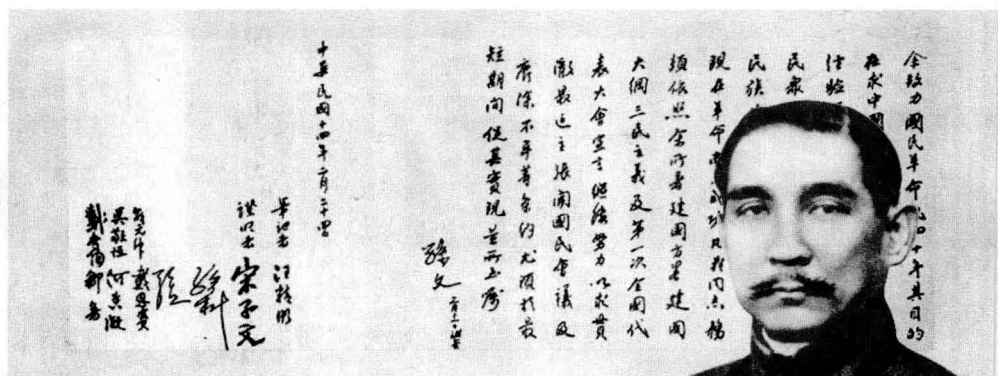 余致力國民革命凡四十年其目的
在求中國
經驗
民衆
民族
現在革命尚 成功凡我同志務
須依照余所著建國方畧建國
大綱三民主義及第一次全國代
表大會宣言繼續努力以求貫
徹最近主張開國民會議及
廢除不平等條約尤須於最
短期間促其實現是所至囑
孫文 二月二十四日
中華民國十四年二月二十四日
筆記者 汪精衛
證明者 宋子文
孫科
孔
邵元冲 戴恩賽
吳敬恆 何香凝
鄒魯